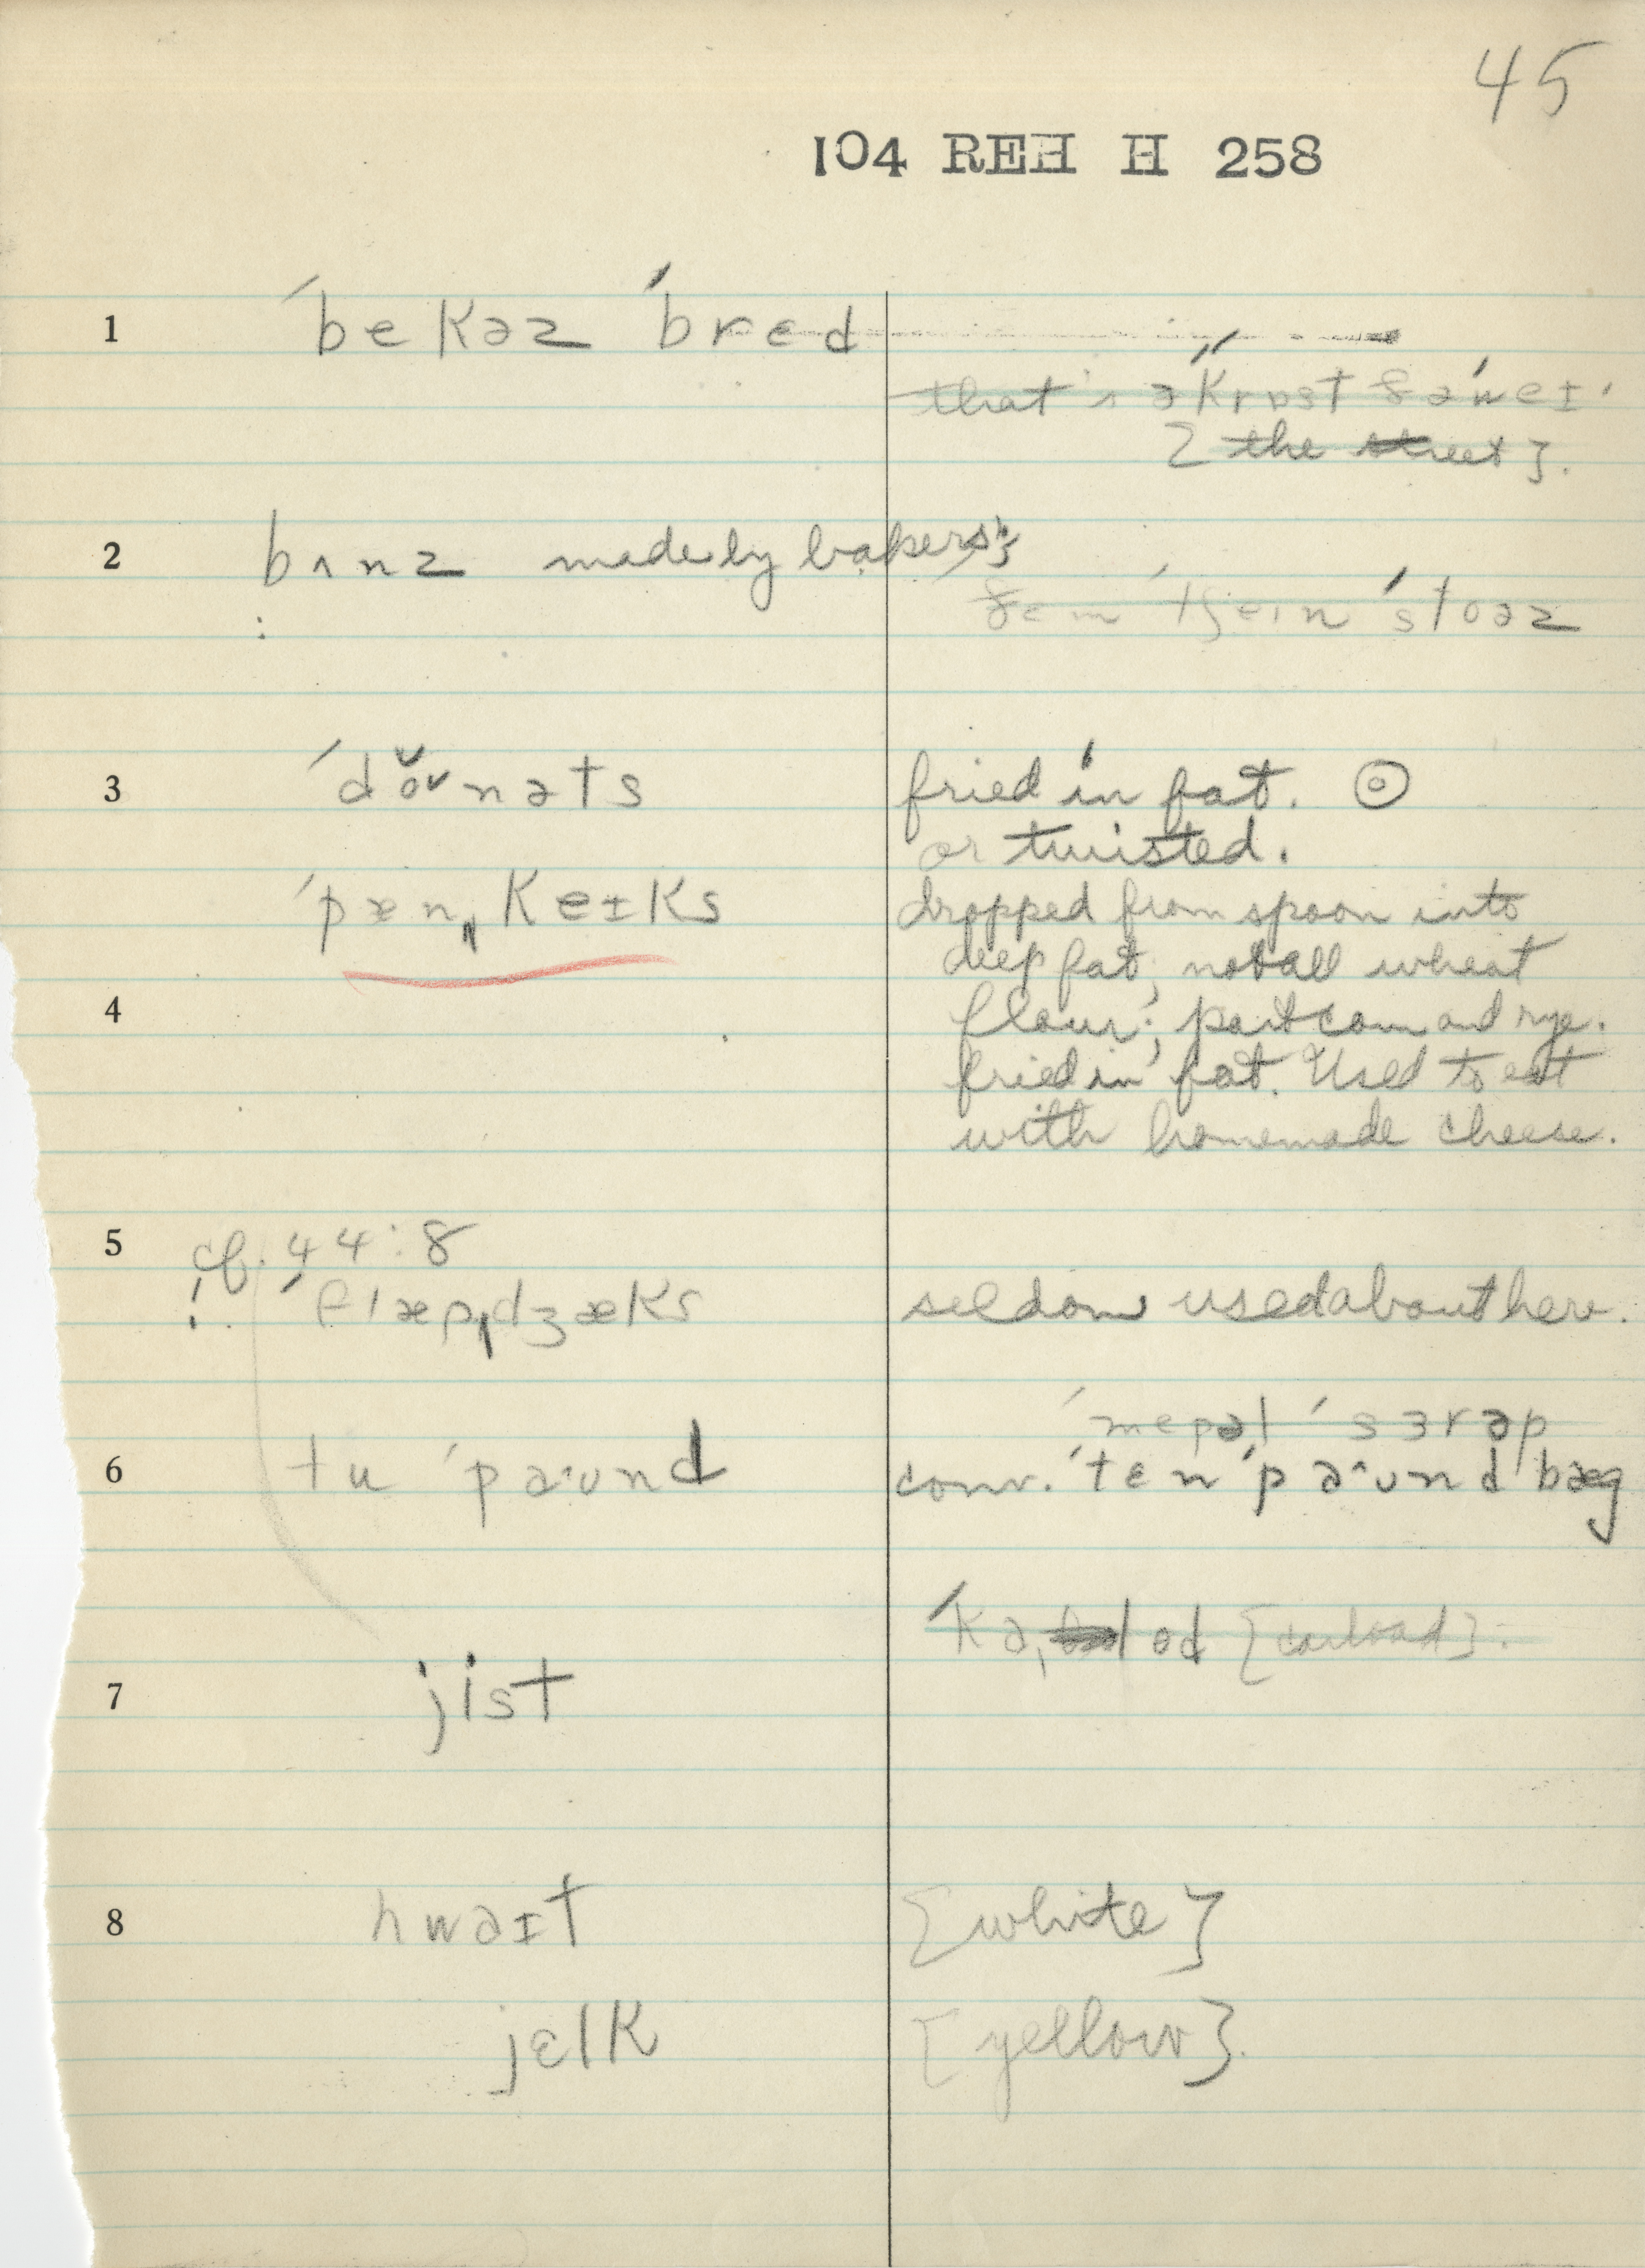 45
104 REH H 258
1 ˈbekəz ˈbred
that's ə krʊst
{the street}.
2 bʌnz made by bakers;
ðem tʃeɪn ˈstoəz
3 ˈdǒᴠnəts fried in fat. ⊙
or twisted.
ˈpænˌkeɪks dropped from spoon into
deep fat; not all wheat
4 flour; part corn and rye.
fried in fat. Used to eat
with homemade cheese.
5 cf. 44:8
! ˈflæpˌdʒæks seldom used about here.
ˈmepəl ˈsɜrəp
6 tu ˈpaˑʊnd conv. ˈten ˈpaˑʊnd ˈbæg
ˈkaˌlod {carload}.
7 jist
8 hwaɪt {white}
jɛlk {yellow}.